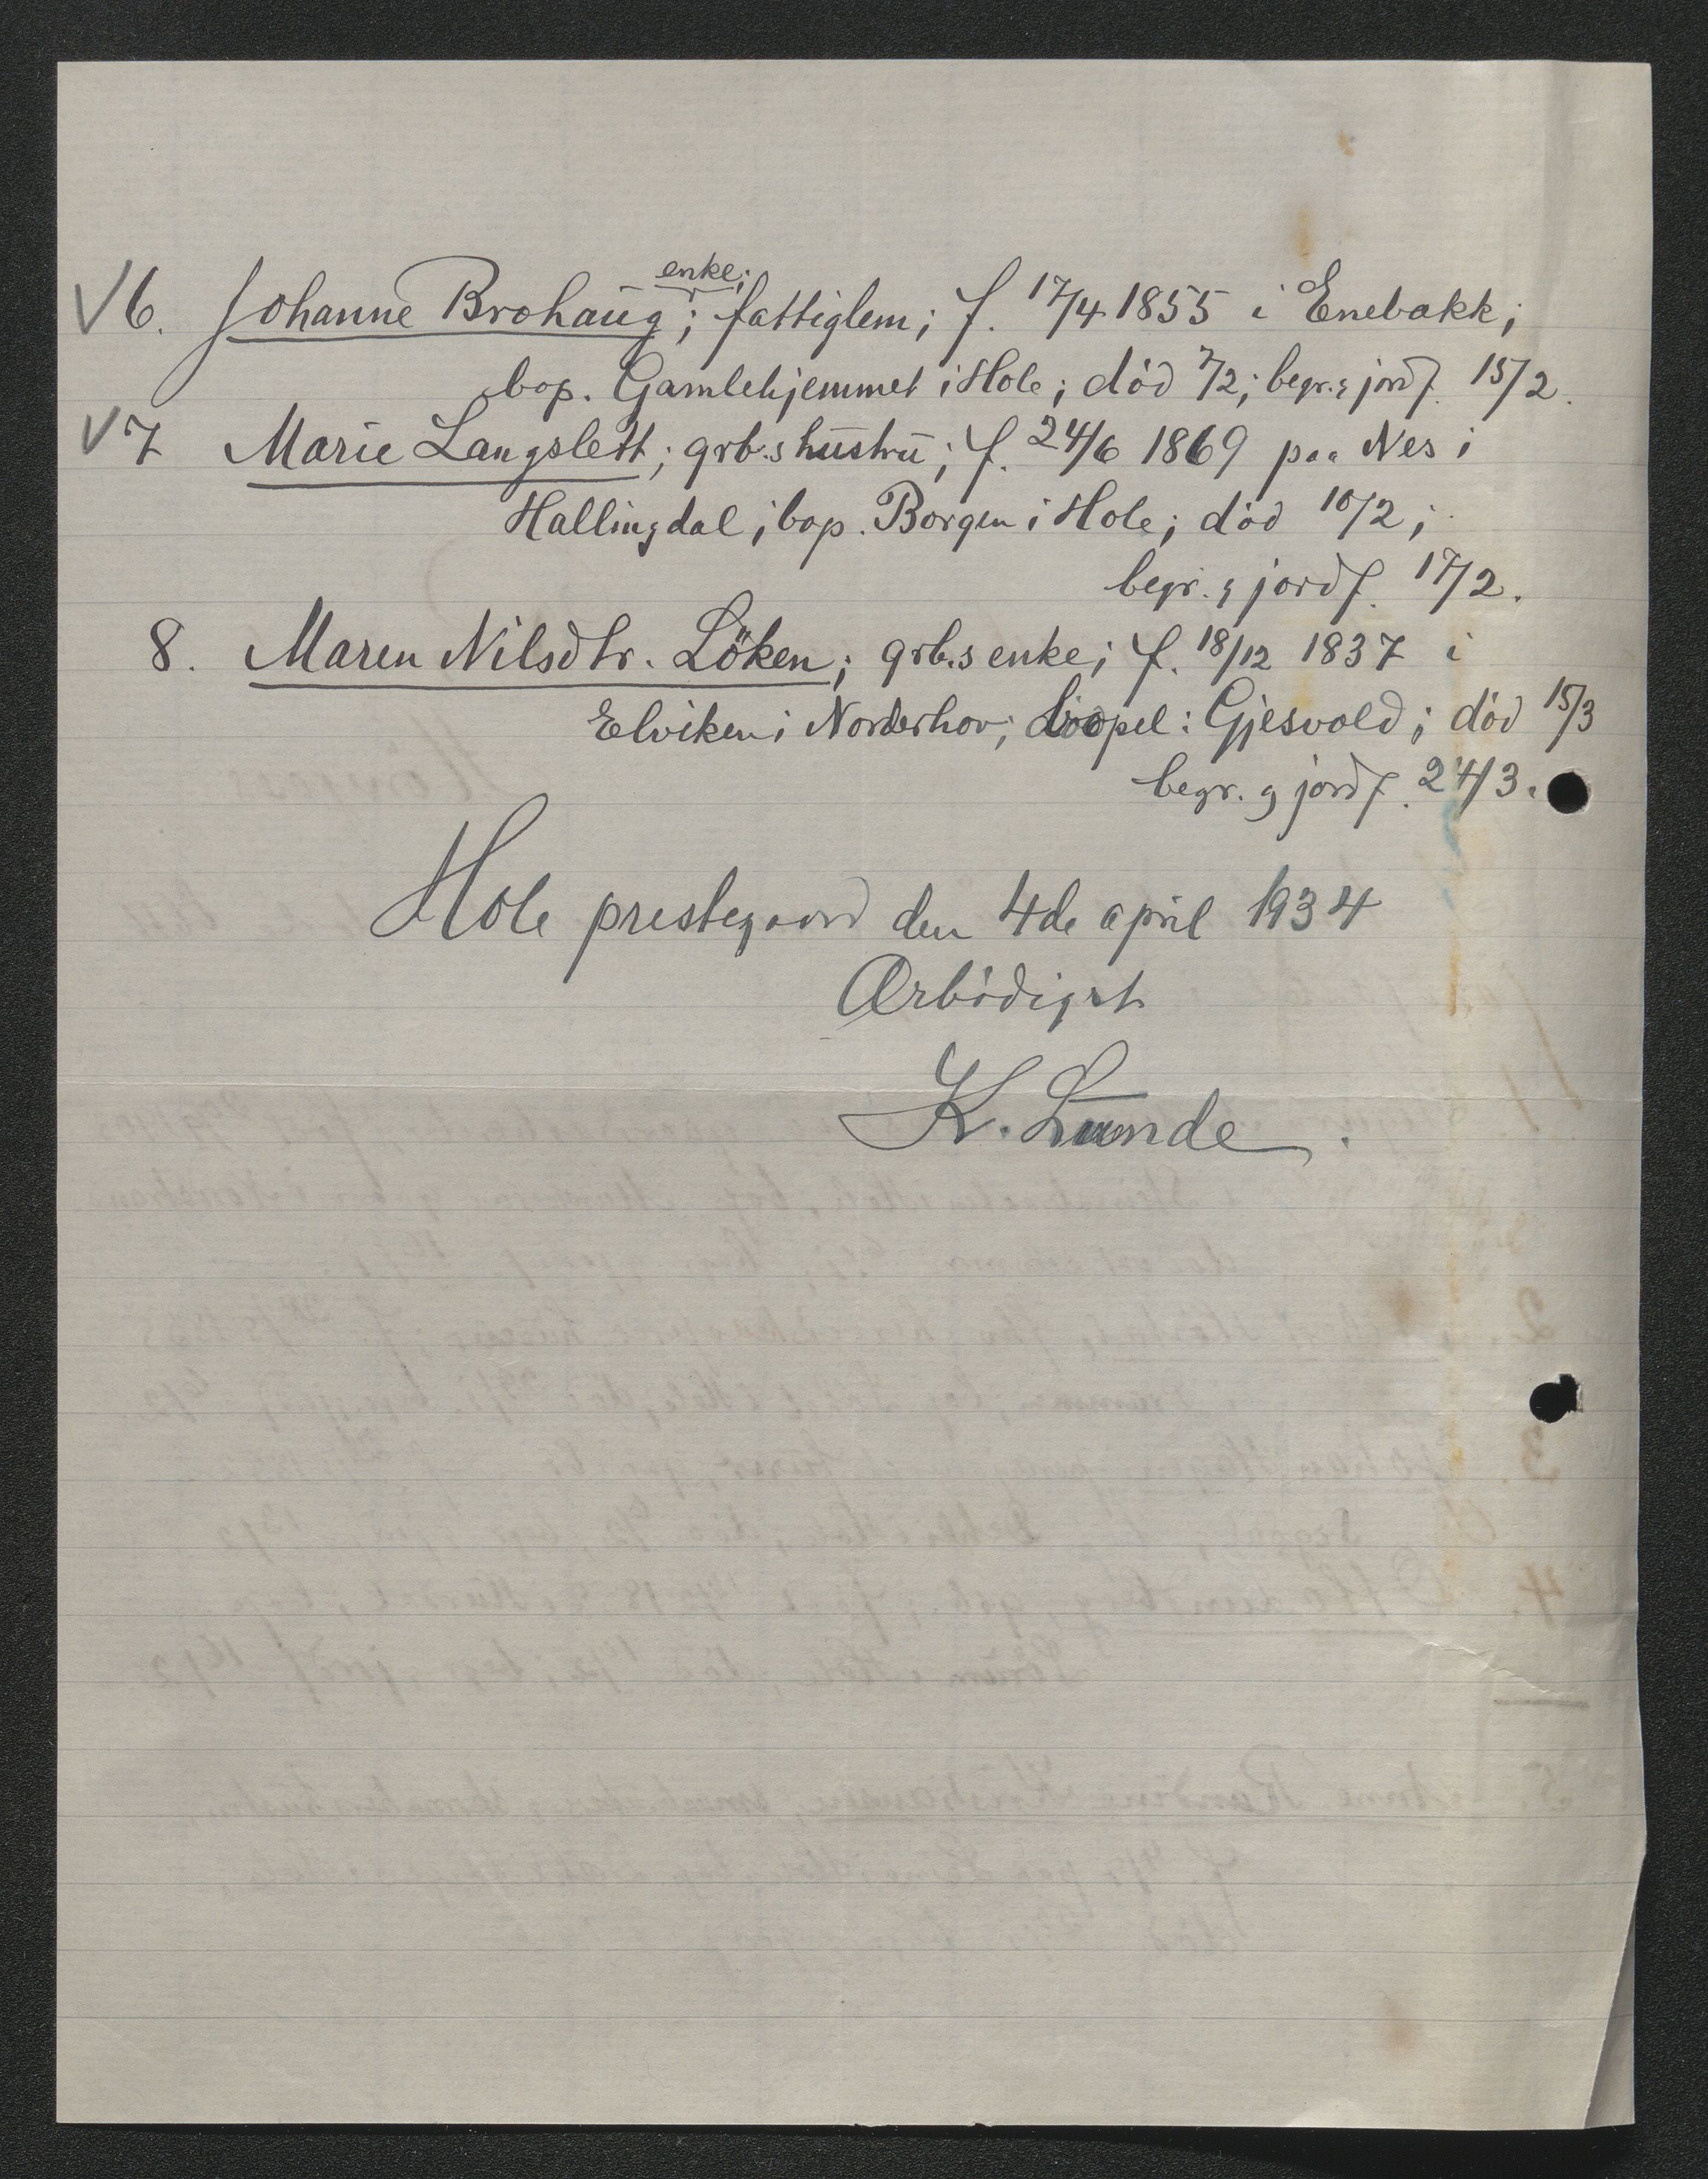 enke;
V 6. Johanne Brohaug; fattiglem; f. 17/4 1855 i Enebakk;
bop. Gamlehjemmet i Hole; död 7/2; begr. & jordf. 15/2.
V 7 Marie Langslett; grb.s hustru; f. 24/6 1869 paa Nes i
Hallingdal; bop. Borgen i Hole; död 10/2;
begr. & jordf. 17/2.
8. Maren Nilsdtr. Löken; grb.s enke; f. 18/12 1837 i
Elviken i Norderhov; bopel: Gjesvold; död 15/3
begr. & jordf. 24/3.
Hole prestegaard den 4de april 1934
Ærbödigst
K. Lunde.